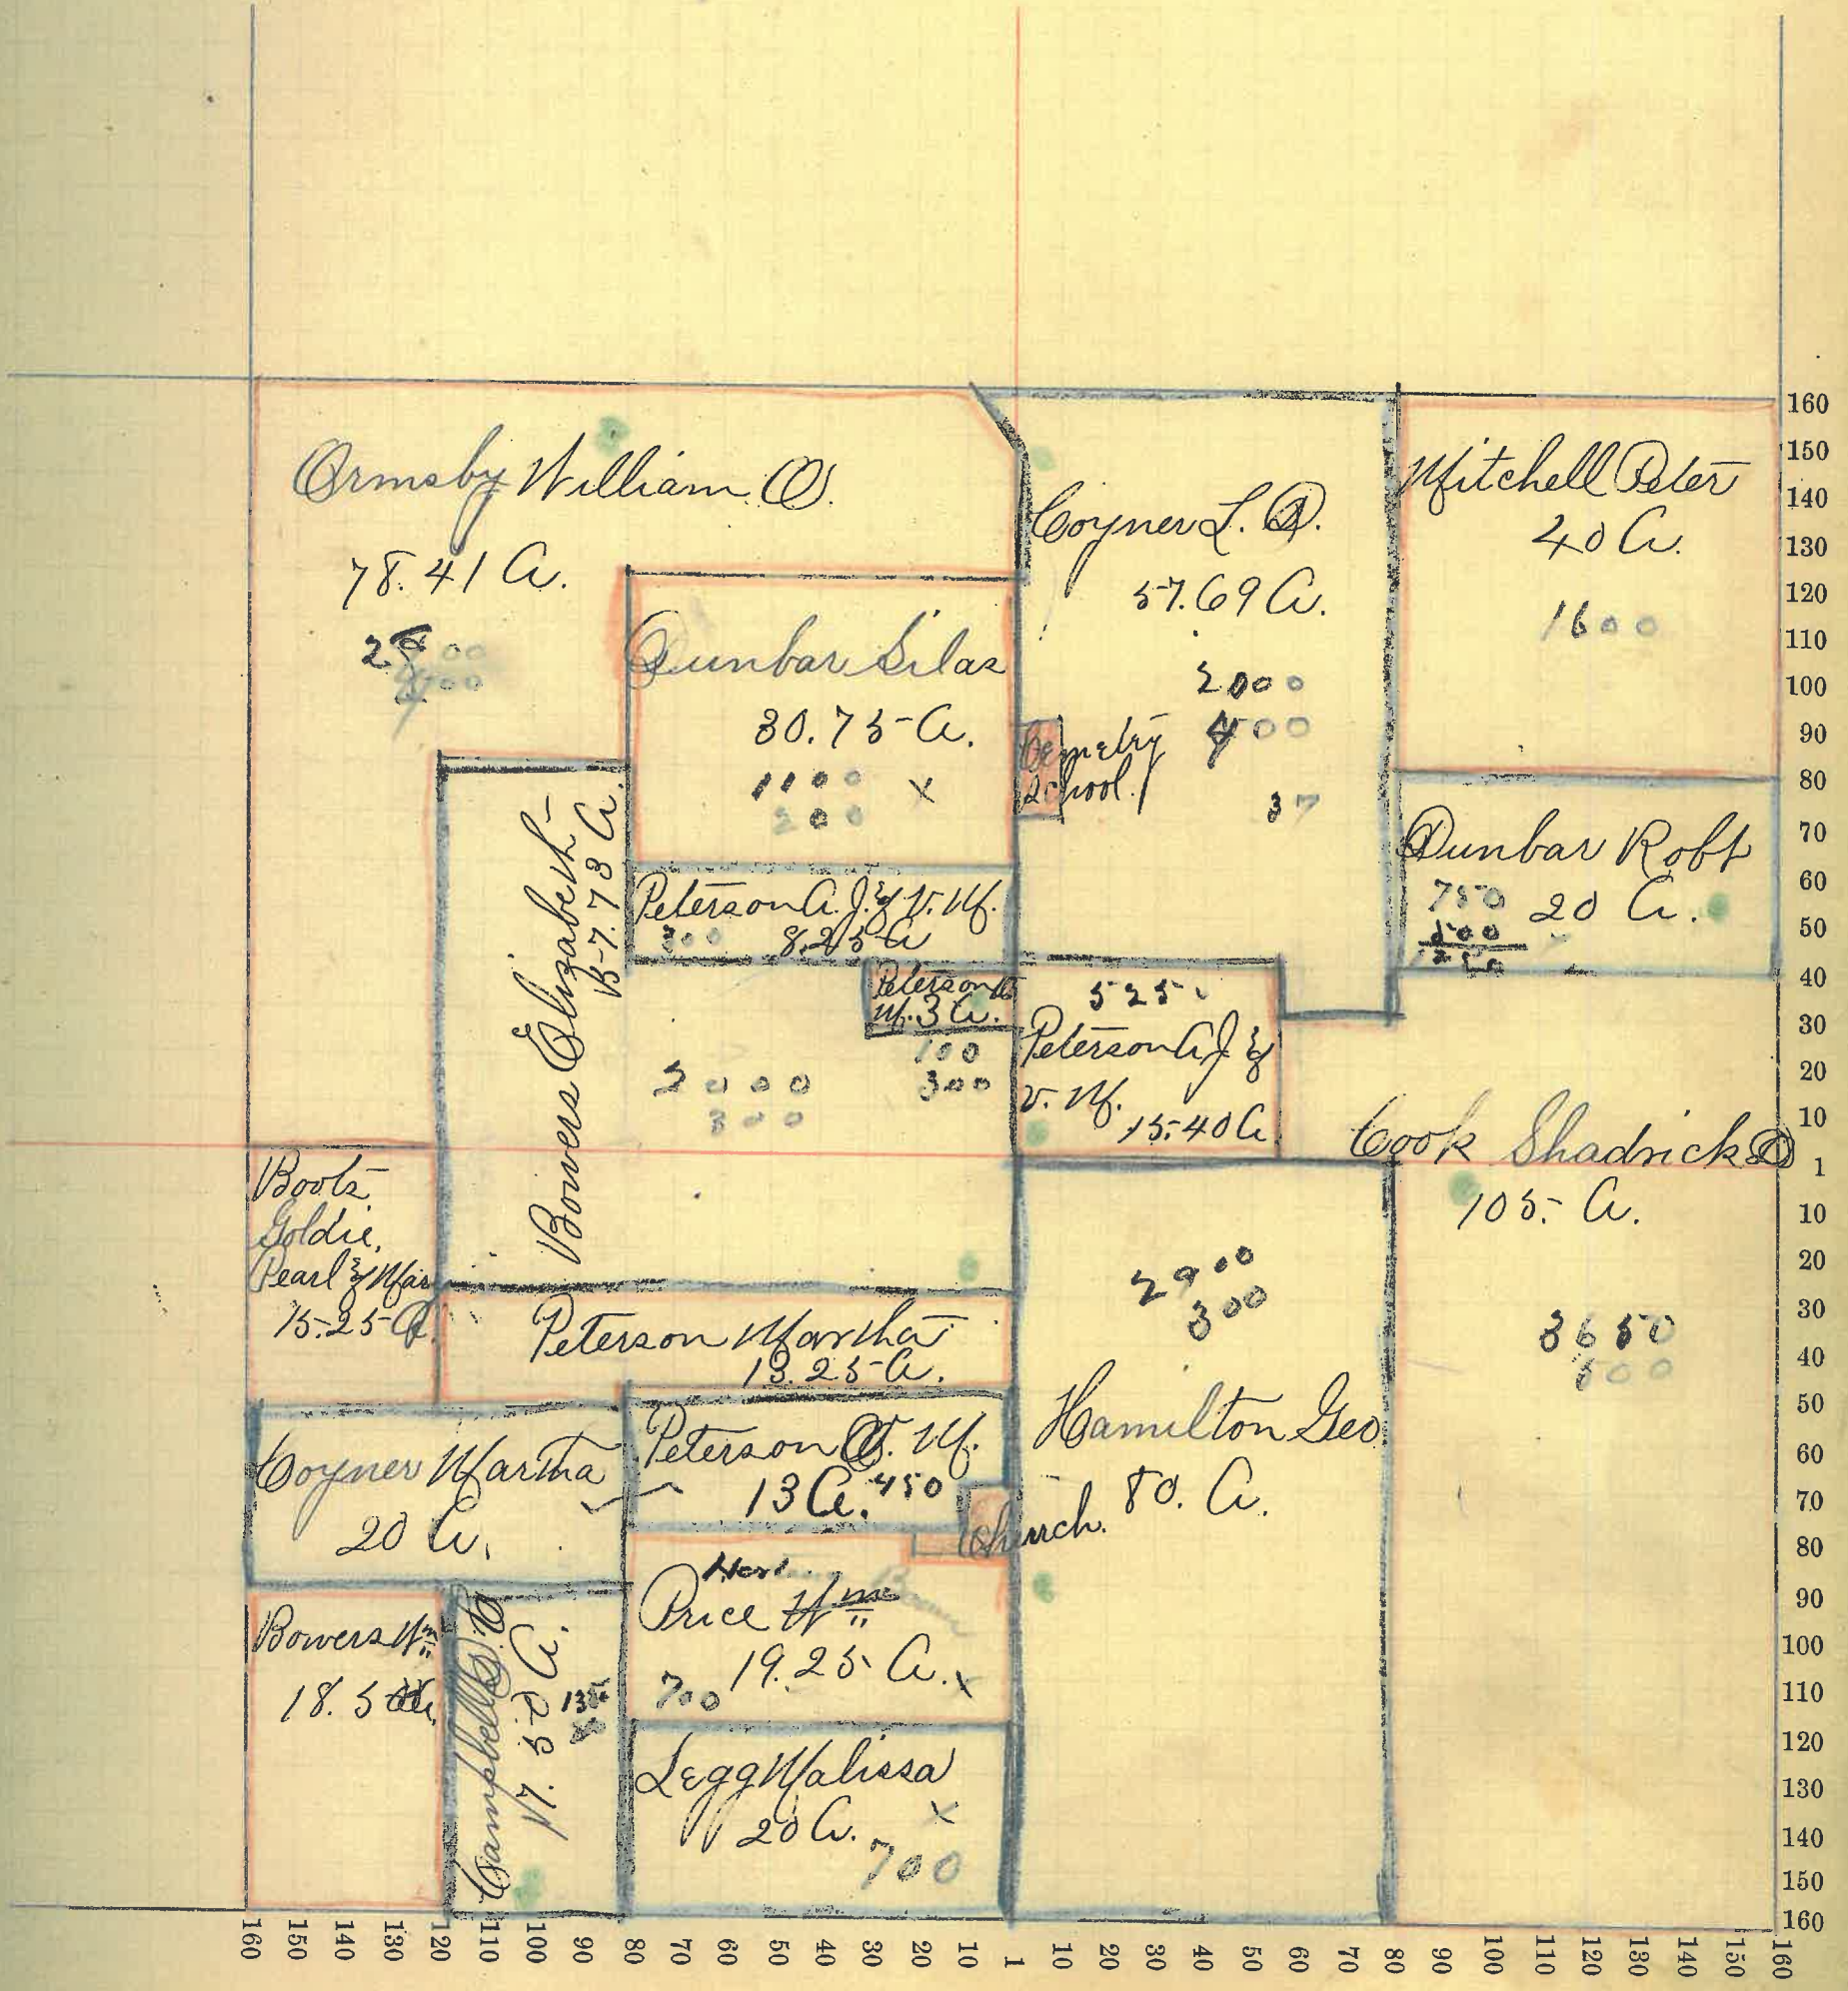 Ormsby William O.
78.41 A.
Coyner L. D.
57.69 A.
2000
400
37
Mitchell Peter
40 A.
1600
Dunbar Silas
30.75 A.
1100 X
200
Cemetry
School.
Dunbar Robt
750
20 A.
500
1250
Bowers Elizabeth
57.73 A.
2000
300
Peterson A. J. & V. M.
300 8.25 A
Peterson
M. 3 A.
100
300
525
Peterson A J &
V. M.
15.40 A
Cook Shadrick D
105. A.
3650
500
Boots
Goldie,
Pearl & Mar
15.25 A.
Peterson Martha
13.25 A.
2900
300
Hamilton Geo.
80. A.
Coyner Martha
20 A.
Peterson O. M.
13 A. 450
Church.
Price Wm
19.25 A. x
700
Bowers Wm
18.5 A.
Campbell
17.50 A.
Legg Malissa
20 A. X
700
160
150
140
130
120
110
100
90
80
70
60
50
40
30
20
10
1
10
20
30
40
50
60
70
80
90
100
110
120
130
140
150
160
160 150 140 130 120 110 100 90 80 70 60 50 40 30 20 10 1 10 20 30 40 50 60 70 80 90 100 110 120 130 140 150 160